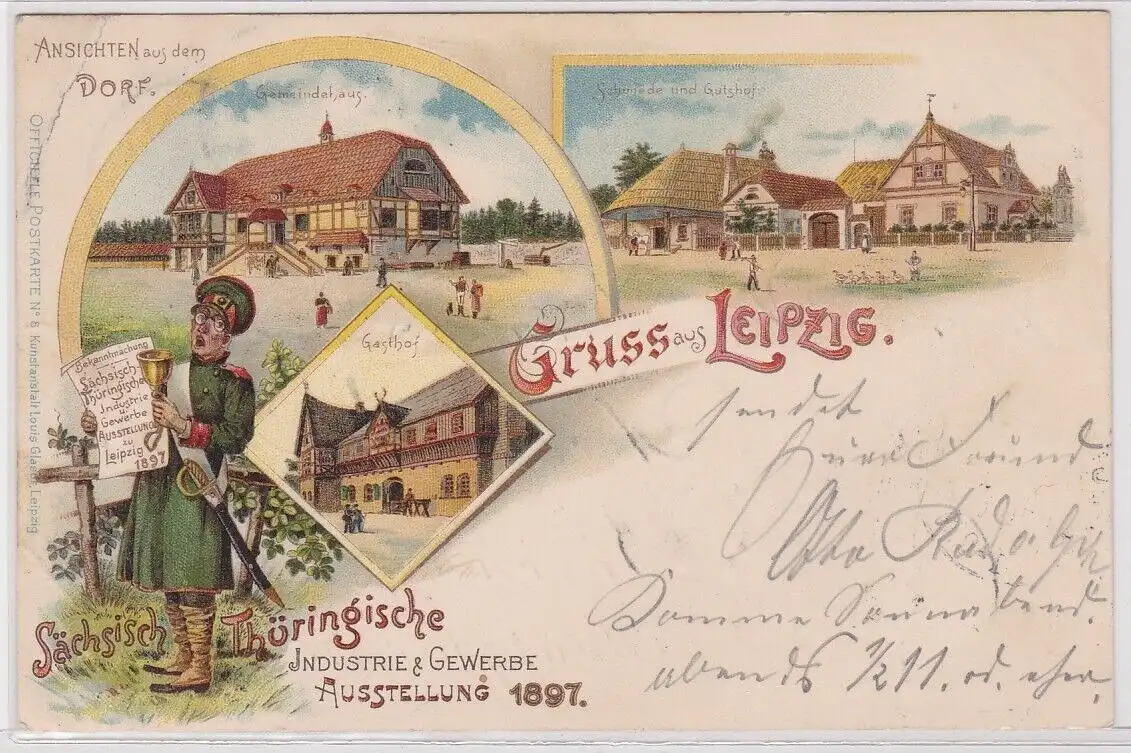 ANSICHTEN aus dem
DORF.
Gemeindehaus.
Schmiede und Gutshof.
OFFICIELLE POSTKARTE Nº 8 Kunstanstalt Louis Glaser, Leipzig
Gasthof
Gruss aus LEIPZIG.
Bekanntmachung
Sächsisch
Thüringische
Industrie
u.
Gewerbe
AUSSTELLUNG
zu
Leipzig
1897
sendet
Freund
Otto
Komme Sonnabend
abends 1/2 11. od. eher.
Sächsisch Thüringische
INDUSTRIE & GEWERBE
AUSSTELLUNG 1897.